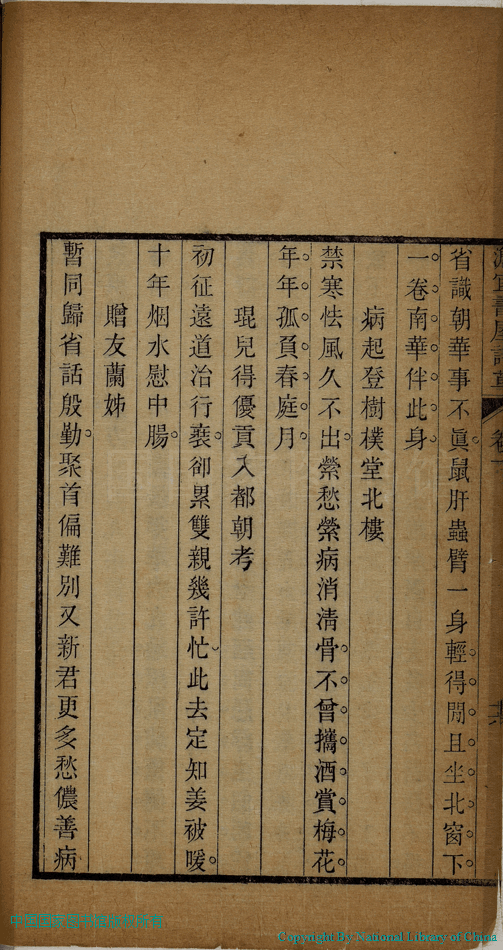 省識朝華事不眞鼠肝蟲臂一身輕得閒且坐北窗下
一卷南華伴此身
病起登樹樸堂北樓
禁寒怯風久不出縈愁縈病消清骨不曾攜酒賞梅花
年年孤負春庭月
琨兒得優貢入都朝考
初征遠道治行裝卻累雙親幾許忙此去定知姜被暖
十年烟水慰中腸
贈友蘭姊
暫同歸省話殷勤聚首偏難別又新君更多愁儂善病
Copyright By National Library of China